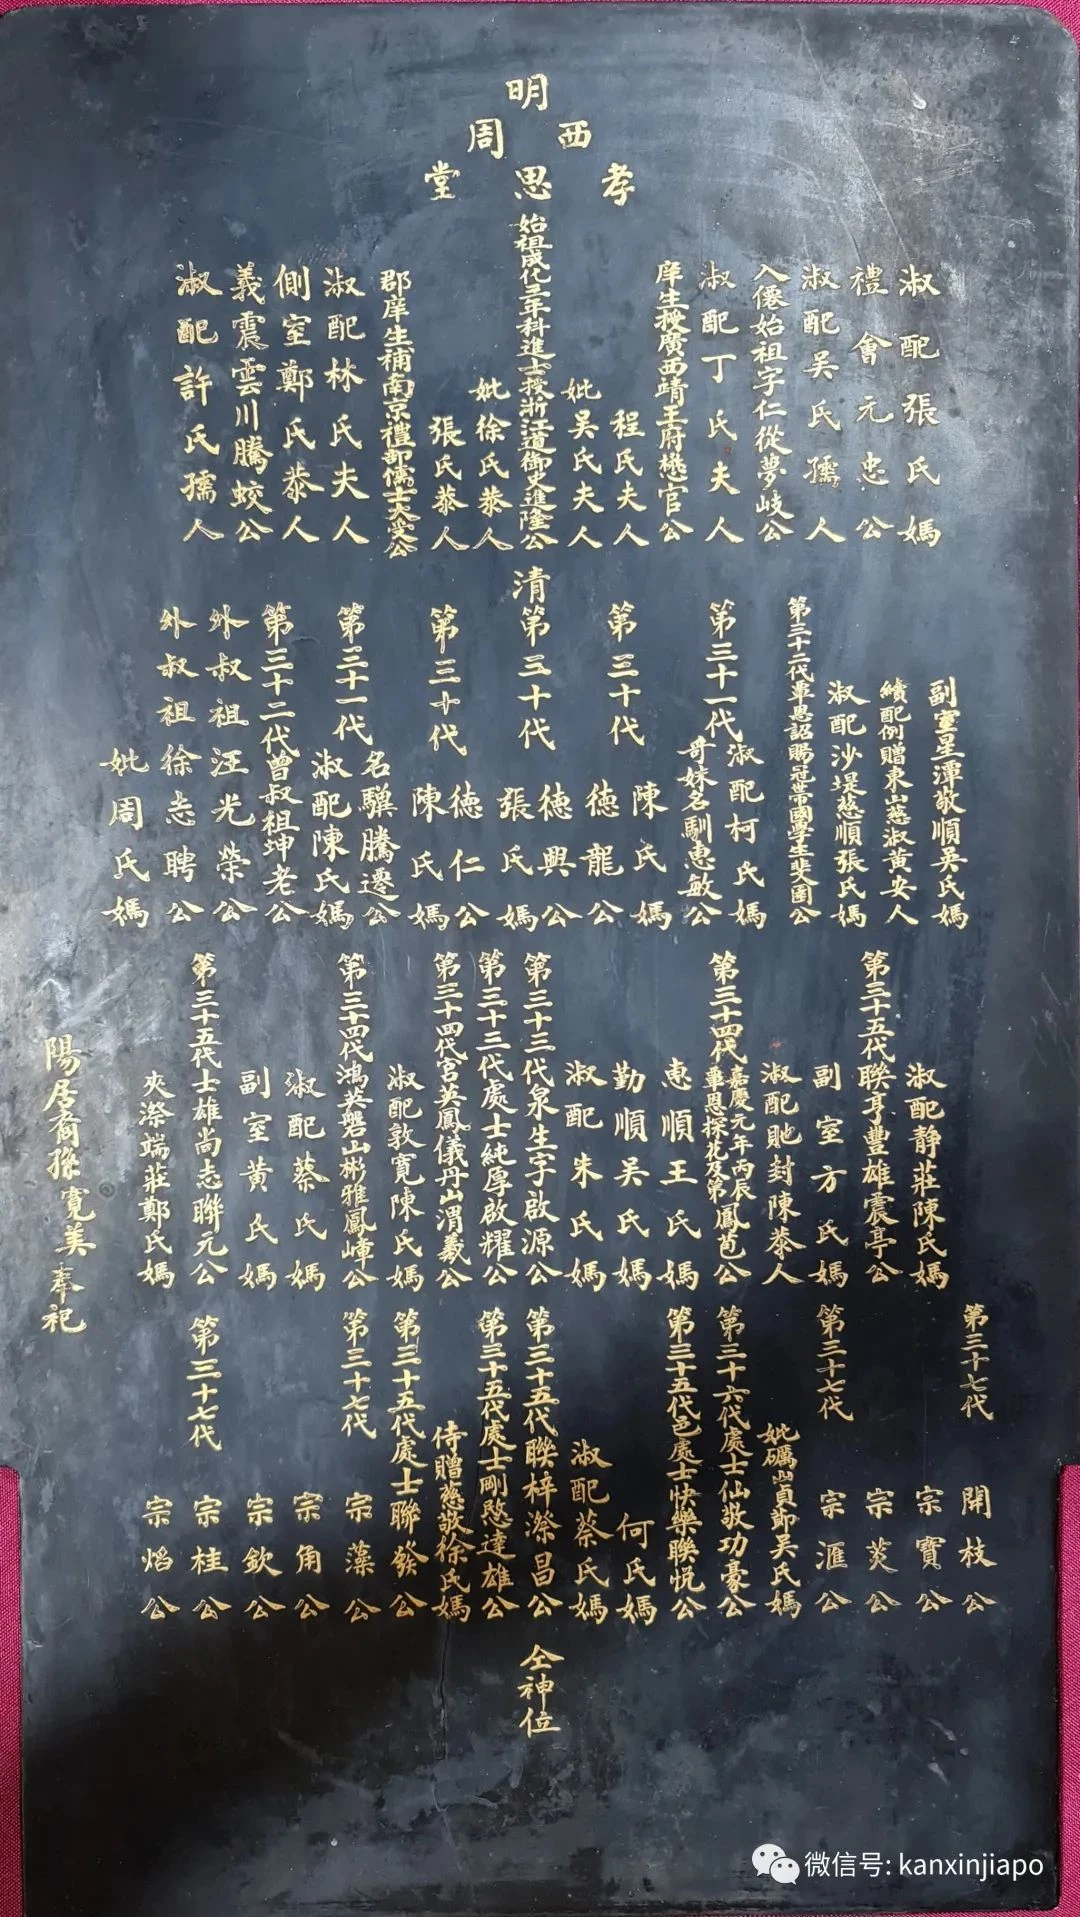 明
西周
孝思堂
淑配張氏媽
禮會元忠公
淑配吳氏孺人
入僊始祖字仁從夢岐公
淑配丁氏夫人
庠生授廣西靖王府樾官公
程氏夫人
妣吳氏夫人
始祖成化三年科進士授浙江道御史進隆公
妣徐氏恭人
張氏恭人
郡庠生補南京禮部儒士大受公
淑配林氏夫人
側室鄭氏恭人
義震雲川騰蛟公
淑配許氏孺人
清
副室星潭敬順吳氏媽
續配例贈東崑慈淑黃安人
淑配沙堤慈順張氏媽
第三十二代覃恩詔賜冠帶國學生斐園公
淑配柯氏媽
第三十一代哥妹名馴惠敏公
陳氏媽
第三十代德龍公
第三十代德興公
張氏媽
第三十代德仁公
陳氏媽
第三十一代名驥騰遷公
淑配陳氏媽
第三十二代曾叔祖坤老公
外叔祖汪光榮公
外叔祖徐志聘公
妣周氏媽
淑配靜莊陳氏媽
第三十五代聯亨豐雄震亭公
副室方氏媽
淑配貤封陳恭人
第三十四代嘉慶元年丙辰覃恩探花及第鳳苞公
惠順王氏媽
勤順吳氏媽
淑配朱氏媽
第三十三代泉生字啟源公
第三十三代處士純厚啟耀公
第三十四代宮英鳳儀丹山渭羲公
淑配敦寬陳氏媽
第三十四代鴻英磐山彬雅鳳嶂公
淑配蔡氏媽
副室黃氏媽
第三十五代士雄尚志聯元公
夾漈端莊鄭氏媽
第三十七代開枝公
宗寶公
宗炎公
第三十七代宗滙公
妣礪山貞節吳氏媽
第三十六代處士仙敬功豪公
第三十五代邑處士快樂聯悅公
何氏媽
淑配蔡氏媽
第三十五代聯梓漈昌公
第三十五代處士剛愍達雄公
侍贈慈敬徐氏媽
第三十五代處士聯發公
第三十七代宗藻公
宗角公
宗欽公
第三十七代宗桂公
宗焰公
仝神位
陽居裔孫寬美奉祀
微信号: kanxinjiapo